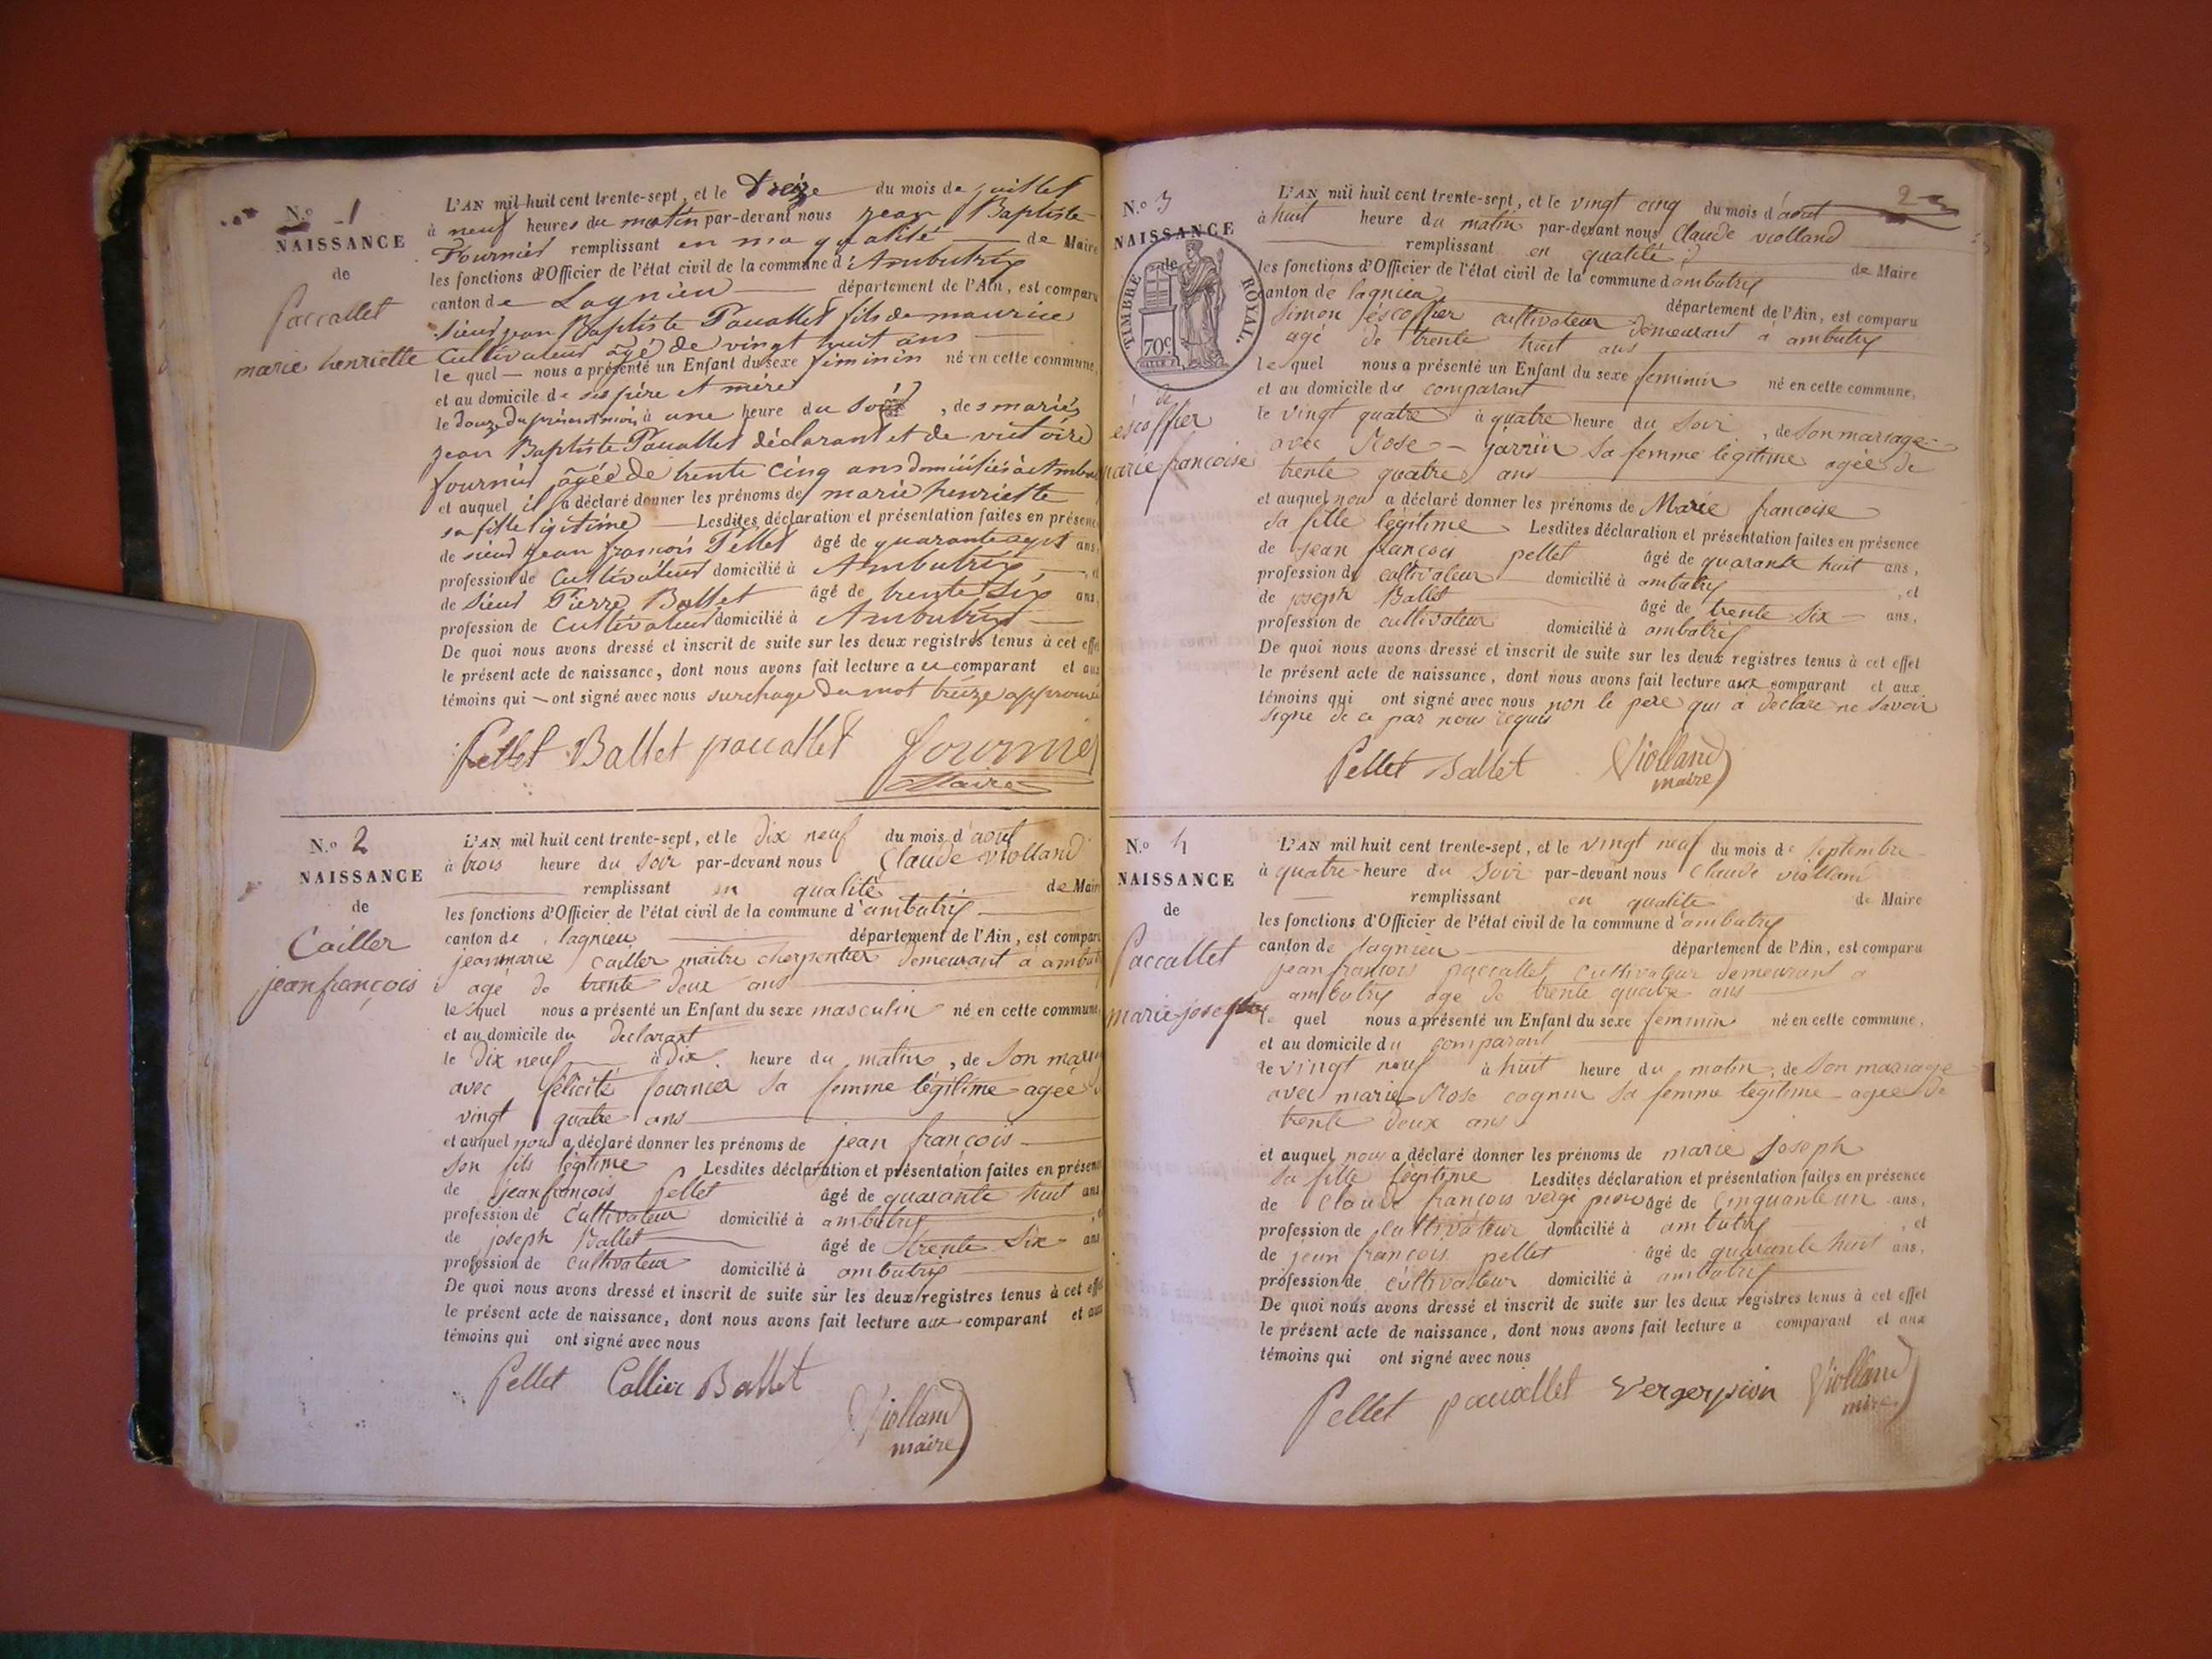 N.º 1
NAISSANCE
de
Paccallet
marie henriette
L'AN mil huit cent trente-sept, et le treize du mois de juillet
à neuf heures du matin par-devant nous jean Baptiste
Fournier remplissant en ma qualité de Maire
les fonctions d'Officier de l'état civil de la commune d'Ambutrix
canton de Lagnieu département de l'Ain, est comparu
sieur jean Baptiste Paccallet fils de maurice
Cultivateur âgé de vingt huit ans
le quel nous a présenté un Enfant du sexe féminin né en cette commune,
et au domicile de ses père et mère
le douze du présent mois à une heure du soir, des mariés
jean Baptiste Paccallet déclarant et de victoire
fournier âgée de trente cinq ans domiciliés à Ambu
et auquel il a déclaré donner les prénoms de marie henriette
sa fille légitime Lesdites déclaration et présentation faites en présence
de sieur jean françois Pellet âgé de quarante ans,
profession de Cultivateur domicilié à Ambutrix, et
de sieur Pierre Ballet âgé de trente six ans,
profession de Cultivateur domicilié à Ambutrix
De quoi nous avons dressé et inscrit de suite sur les deux registres tenus à cet effet
le présent acte de naissance, dont nous avons fait lecture a ce comparant et aux
témoins qui ont signé avec nous surchage du mot treize approuvé
Pellet Ballet paccallet fournier
Maire
N.º 2
NAISSANCE
de
Cailler
jean françois
L'AN mil huit cent trente-sept, et le dix neuf du mois d'aout
à trois heure du soir par-devant nous Claude violland
remplissant en qualité de Maire
les fonctions d'Officier de l'état civil de la commune d'ambutrix
canton de lagnieu département de l'Ain, est comparu
jean marie cailler maitre cherpentier demeurant a ambut
agé de trente deux ans
lesquel nous a présenté un Enfant du sexe masculin né en cette commune,
et au domicile du declarant
le dix neuf à dix heure du matin, de son mari
avec félicité fournier sa femme légitime agée
vingt quatre ans
et auquel nous a déclaré donner les prénoms de jean françois
son fils légitime Lesdites déclaration et présentation faites en présen
de jean françois pellet âgé de quarante huit ans
profession de cultivateur domicilié à ambutrix
de joseph Ballet âgé de trente six ans
profession de cultivateur domicilié à ambutrix
De quoi nous avons dressé et inscrit de suite sur les deux registres tenus à cet effet
le présent acte de naissance, dont nous avons fait lecture aux comparant et aux
témoins qui ont signé avec nous
Pellet Callier Ballet
Violland
maire
2
N.º 3
NAISSANCE
de
TIMBRE ROYAL.
70c
de
escoffier
marie francoise
L'AN mil huit cent trente-sept, et le vingt cinq du mois d'aout
à huit heure du matin par-devant nous Claude violland
remplissant en qualité de Maire
les fonctions d'Officier de l'état civil de la commune d'ambutrix
canton de lagnieu département de l'Ain, est comparu
simon escoffier cultivateur demeurant à ambutrix
agé de trente huit ans
lesquel nous a présenté un Enfant du sexe feminin né en cette commune,
et au domicile du comparant
le vingt quatre à quatre heure du soir, de son mariage
avec Rose jarrin sa femme légitime agée de
trente quatre ans
et auquel nous a déclaré donner les prénoms de Marie francoise
sa fille légitime Lesdites déclaration et présentation faites en présence
de jean françois pellet âgé de quarante huit ans,
profession de cultivateur domicilié à ambutrix, et
de joseph Ballet âgé de trente six ans,
profession de cultivateur domicilié à ambutrix
De quoi nous avons dressé et inscrit de suite sur les deux registres tenus à cet effet
le présent acte de naissance, dont nous avons fait lecture aux comparant et aux
témoins qui ont signé avec nous non le pere qui a declare ne savoir
signe de ce par nous requis
Pellet Ballet Violland
maire
N.º 4
NAISSANCE
de
Paccallet
marie joseph
L'AN mil huit cent trente-sept, et le vingt neuf du mois de septembre
à quatre heure du soir par-devant nous Claude violland
remplissant en qualité de Maire
les fonctions d'Officier de l'état civil de la commune d'ambutrix
canton de lagnieu département de l'Ain, est comparu
jean françois paccallet cultivateur demeurant a
ambutrix agé de trente quatre ans
le quel nous a présenté un Enfant du sexe feminin né en cette commune,
et au domicile du comparant
le vingt neuf à huit heure du matin, de son mariage
avec marie Rose cognin sa femme légitime agée de
trente deux ans
et auquel nous a déclaré donner les prénoms de marie joseph
sa fille légitime Lesdites déclaration et présentation faites en présence
de Claude françois âgé de cinquante un ans,
profession de cultivateur domicilié à ambutrix, et
de jean françois pellet âgé de quarante huit ans,
profession de cultivateur domicilié à ambutrix
De quoi nous avons dressé et inscrit de suite sur les deux registres tenus à cet effet
le présent acte de naissance, dont nous avons fait lecture a comparant et aux
témoins qui ont signé avec nous
Pellet paccallet Vergerpion Violland
maire